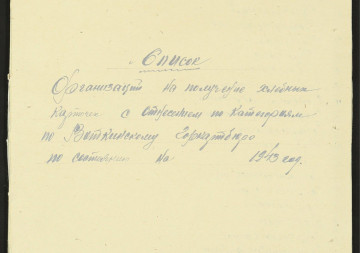 Список
Организаций на получение хлебных
карточек с отнесением по категориям
по Воткинскому Горкартбюро
по состоянию на 1943 год.